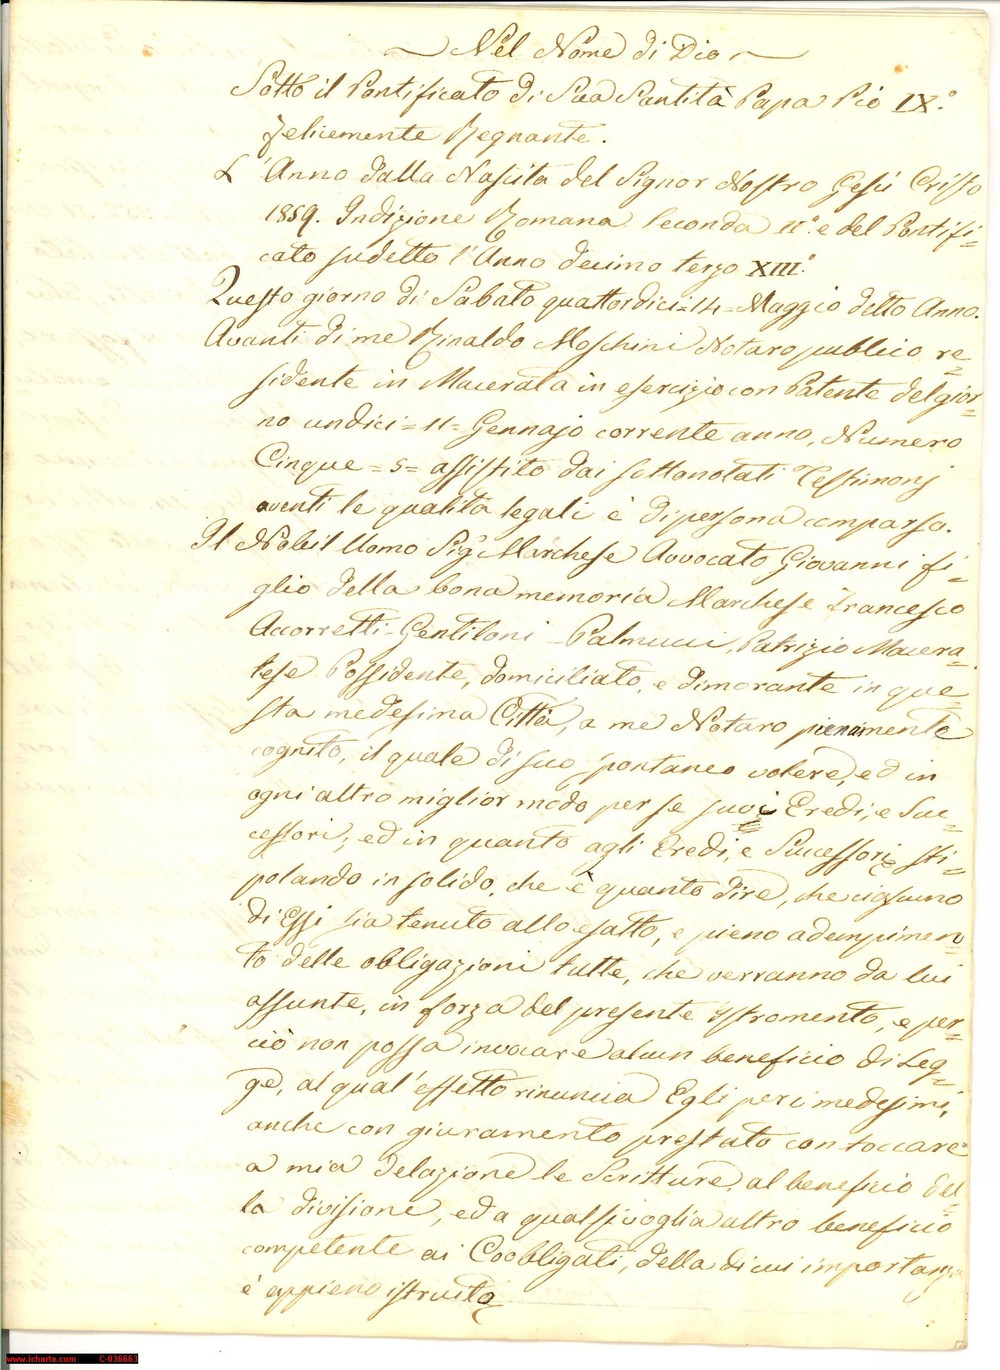 Nel Nome di Dio
Sotto il Pontificato di Sua Santità Papa Pio IX.°
felicemente Regnante.
L'Anno dalla Nascita del Signor Nostro Gesù Cristo
1859. Indizione Romana Seconda II.ª e del Pontifi=
cato sudetto l'Anno decimo terzo XIII.°
Questo giorno di Sabato quattordici=14=Maggio detto Anno.
Avanti di me Rinaldo Moschini Notaro publico re=
sidente in Macerata in esercizio con Patente del gior=
no undici=11=Gennajo corrente anno, Numero
Cinque=5=assistito dai sottonotati Testimonj
aventi le qualità legali è di persona comparso.
Il Nobil Uomo Sig.r Marchese Avvocato Giovanni fi=
glio della bona memoria Marchese Francesco
Accorretti-Gentiloni-Palmucci, Patrizio Macera=
tese Possidente, domiciliato, e dimorante in que=
sta medesima Città, a me Notaro pienamente
cognito, il quale di suo spontaneo volere, ed in
ogni altro miglior modo per se suoi Eredi, e Suc=
cessori, ed in quanto agli Eredi, e Successori sti=
polando in solido, che è quanto dire, che ciascuno
di Essi sia tenuto allo esatto, e pieno adempimen=
to delle obligazioni tutte, che verranno da lui
assunte, in forza del presente Istromento, e per=
ciò non possa invocare alcun beneficio di Leg=
ge, al qual'effetto rinuncia Egli per i medesimi,
anche con giuramento prestato con toccare
a mia delazione le Scritture, al beneficio del=
la divisione, ed a qualsivoglia altro beneficio
competente ai Coobligati, della di cui importanza
è appieno istruito
www.icharta.com C-036663